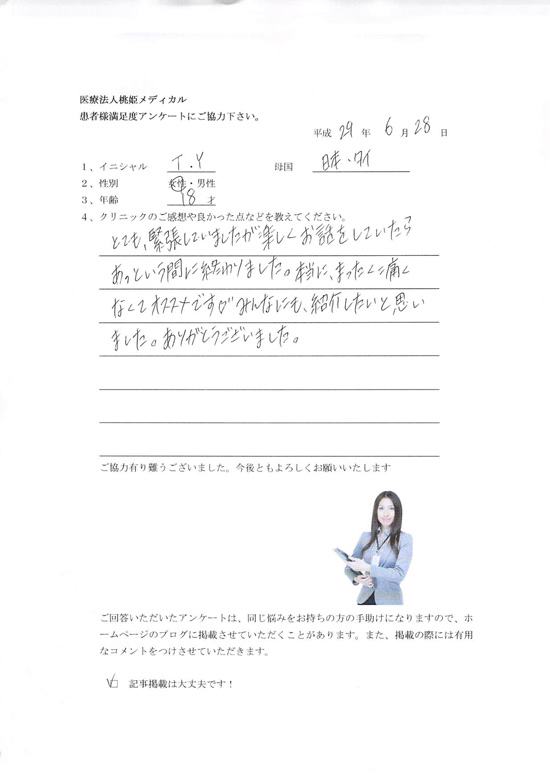 医療法人桃姫メディカル
患者様満足度アンケートにご協力下さい。
平成 29 年 6 月 28 日
1、イニシャル T.Y 母国 日本・タイ
2、性別 女性・男性
3、年齢 18 才
4、クリニックのご感想や良かった点などを教えてください。
とても、緊張していましたが楽しくお話をしていたら
あっという間に終わりました。本当に、まったく痛く
なくてオススメです♡みんなにも、紹介したいと思い
ました。ありがとうございました。
ご協力有り難うございました。今後ともよろしくお願いいたします
ご回答いただいたアンケートは、同じ悩みをお持ちの方の手助けになりますので、ホ
ームページのブログに掲載させていただくことがあります。また、掲載の際には有用
なコメントをつけさせていただきます。
☑ 記事掲載は大丈夫です！